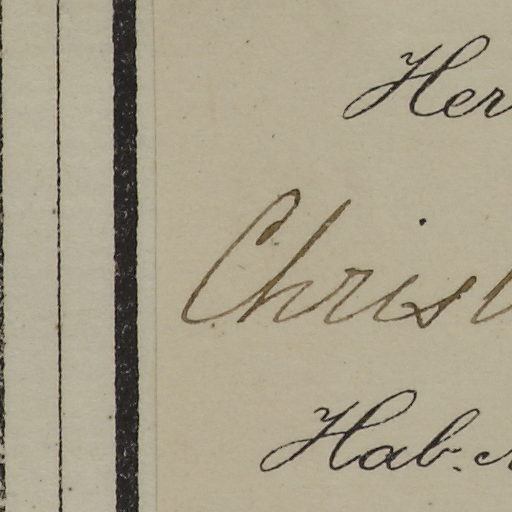 Her
Christ
Hab.